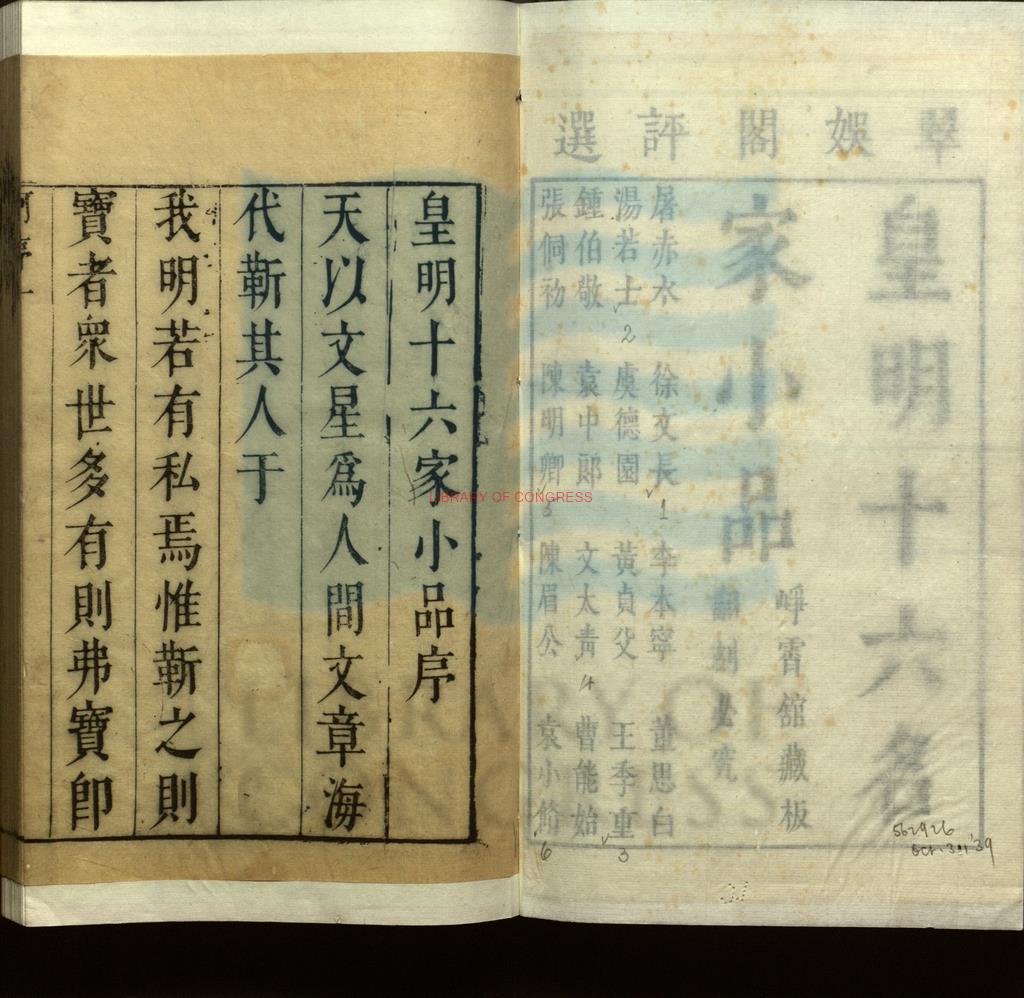 翠娛閣評選
皇明十六名
家小品
崢霄館藏板
翻刻必究
屠赤水 徐文長 李本寧 董思白
湯若士 虞德園 黃貞父 王季重
鍾伯敬 袁中郎 文太青 曹能始
張侗初 陳明卿 陳眉公 袁小脩
1
2
3
4
5
6
562926
Oct. 31 '39
皇明十六家小品序
天以文星爲人間文章海
代靳其人于
我明若有私焉惟靳之則
寶者衆世多有則弗寶卽
LIBRARY OF CONGRESS